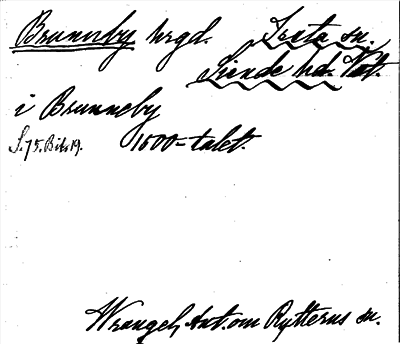 Brunnby hrgd. Irsta sn.
Siende hd. Vstm.
i Brunneby
S. 75. Bil. 19. 1500-talet.
Wrangel, Ant. om Rytterns sn.